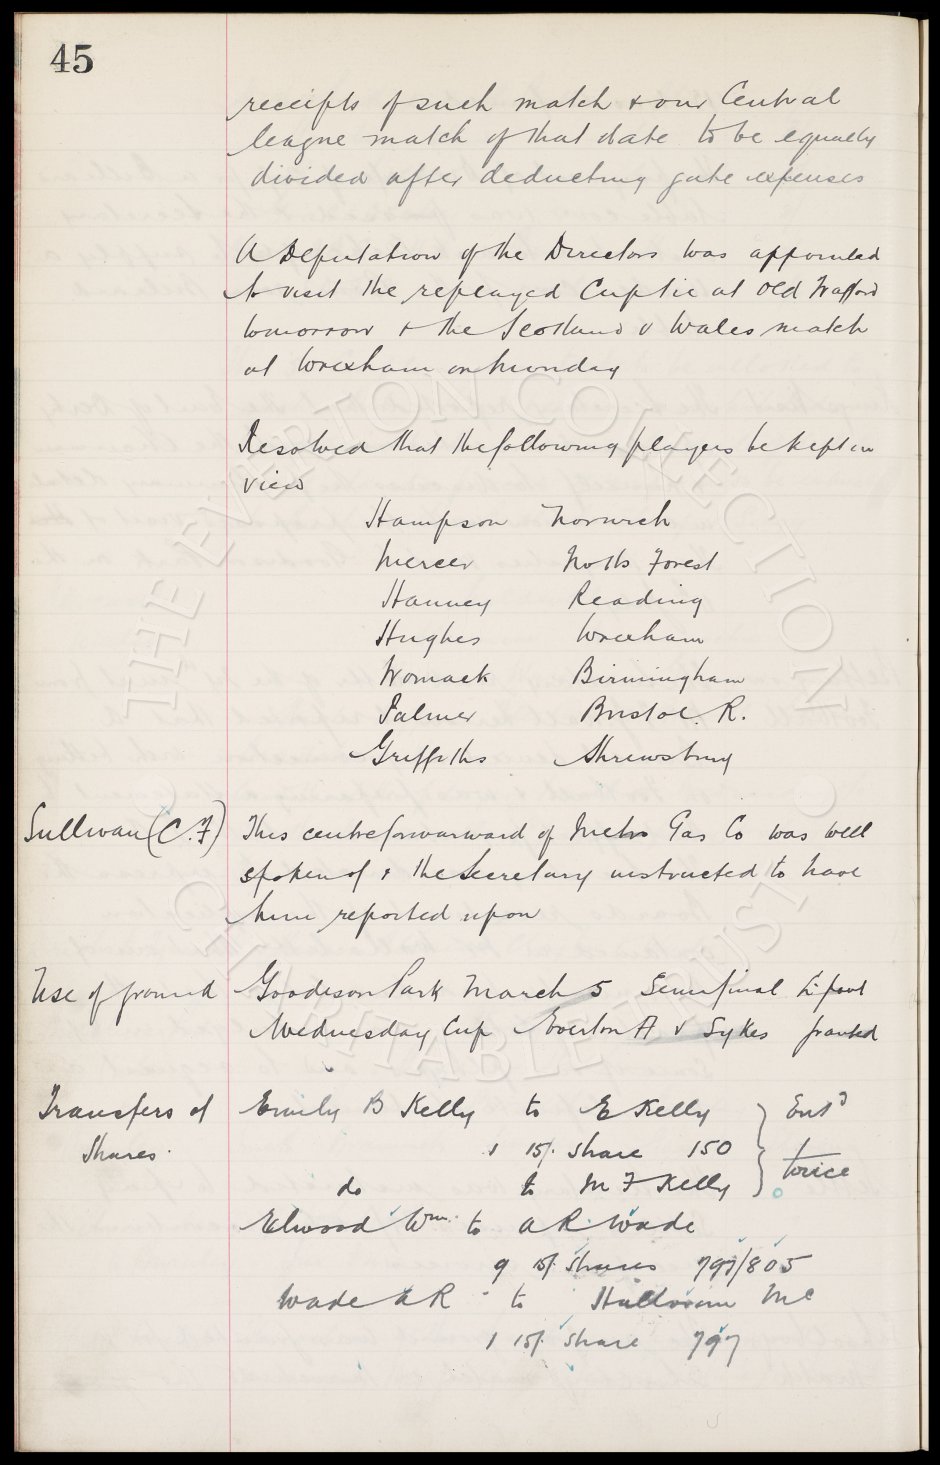 45
receipts of such match & our Central
league match of that date to be equally
divided after deducting gate expenses
A Deputation of the Directors was appointed
to visit the replayed Cup tie at Old Trafford
tomorrow & the Scotland v Wales match
at Wrexham on Monday
Resolved that the following players be kept in
view
Hampson Norwich
Mercer Notts Forest
Hanney Reading
Hughes Wrexham
Womack Birmingham
Palmer Bristol. R.
Griffiths Shrewsbury
Sullivan (C.F) This centreforwarward of Metro Gas Co was well
spoken of & the Secretary instructed to have
him reported upon
Use of ground Goodison Park March 5 Semifinal L'pool
Wednesday Cup Everton A v Sykes granted
Transfers of Emily B Kelly to E Kelly Entd
Shares. 1 15/. share 150
twice
do to M F Kelly
Elwood Wm. to A R Wade
9 15/. shares 797/805
Wade A R to Mc
1 15/. share 797
THE EVERTON COLLECTION
CHARITABLE TRUST